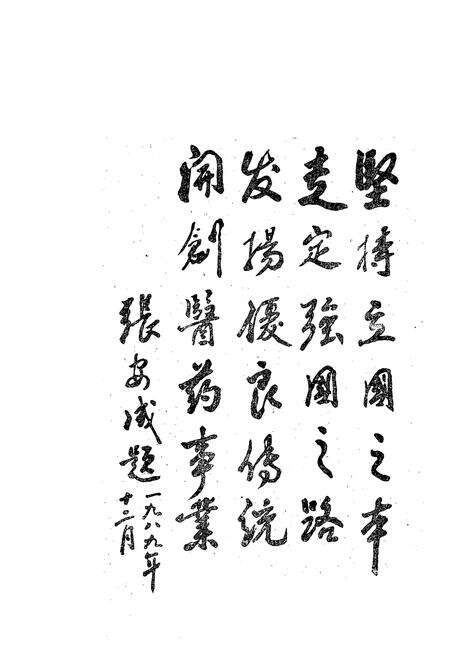 堅持立國之本
走定強國之路
发揚優良傳統
開創醫药事業
張安成題
一九八九年
十二月